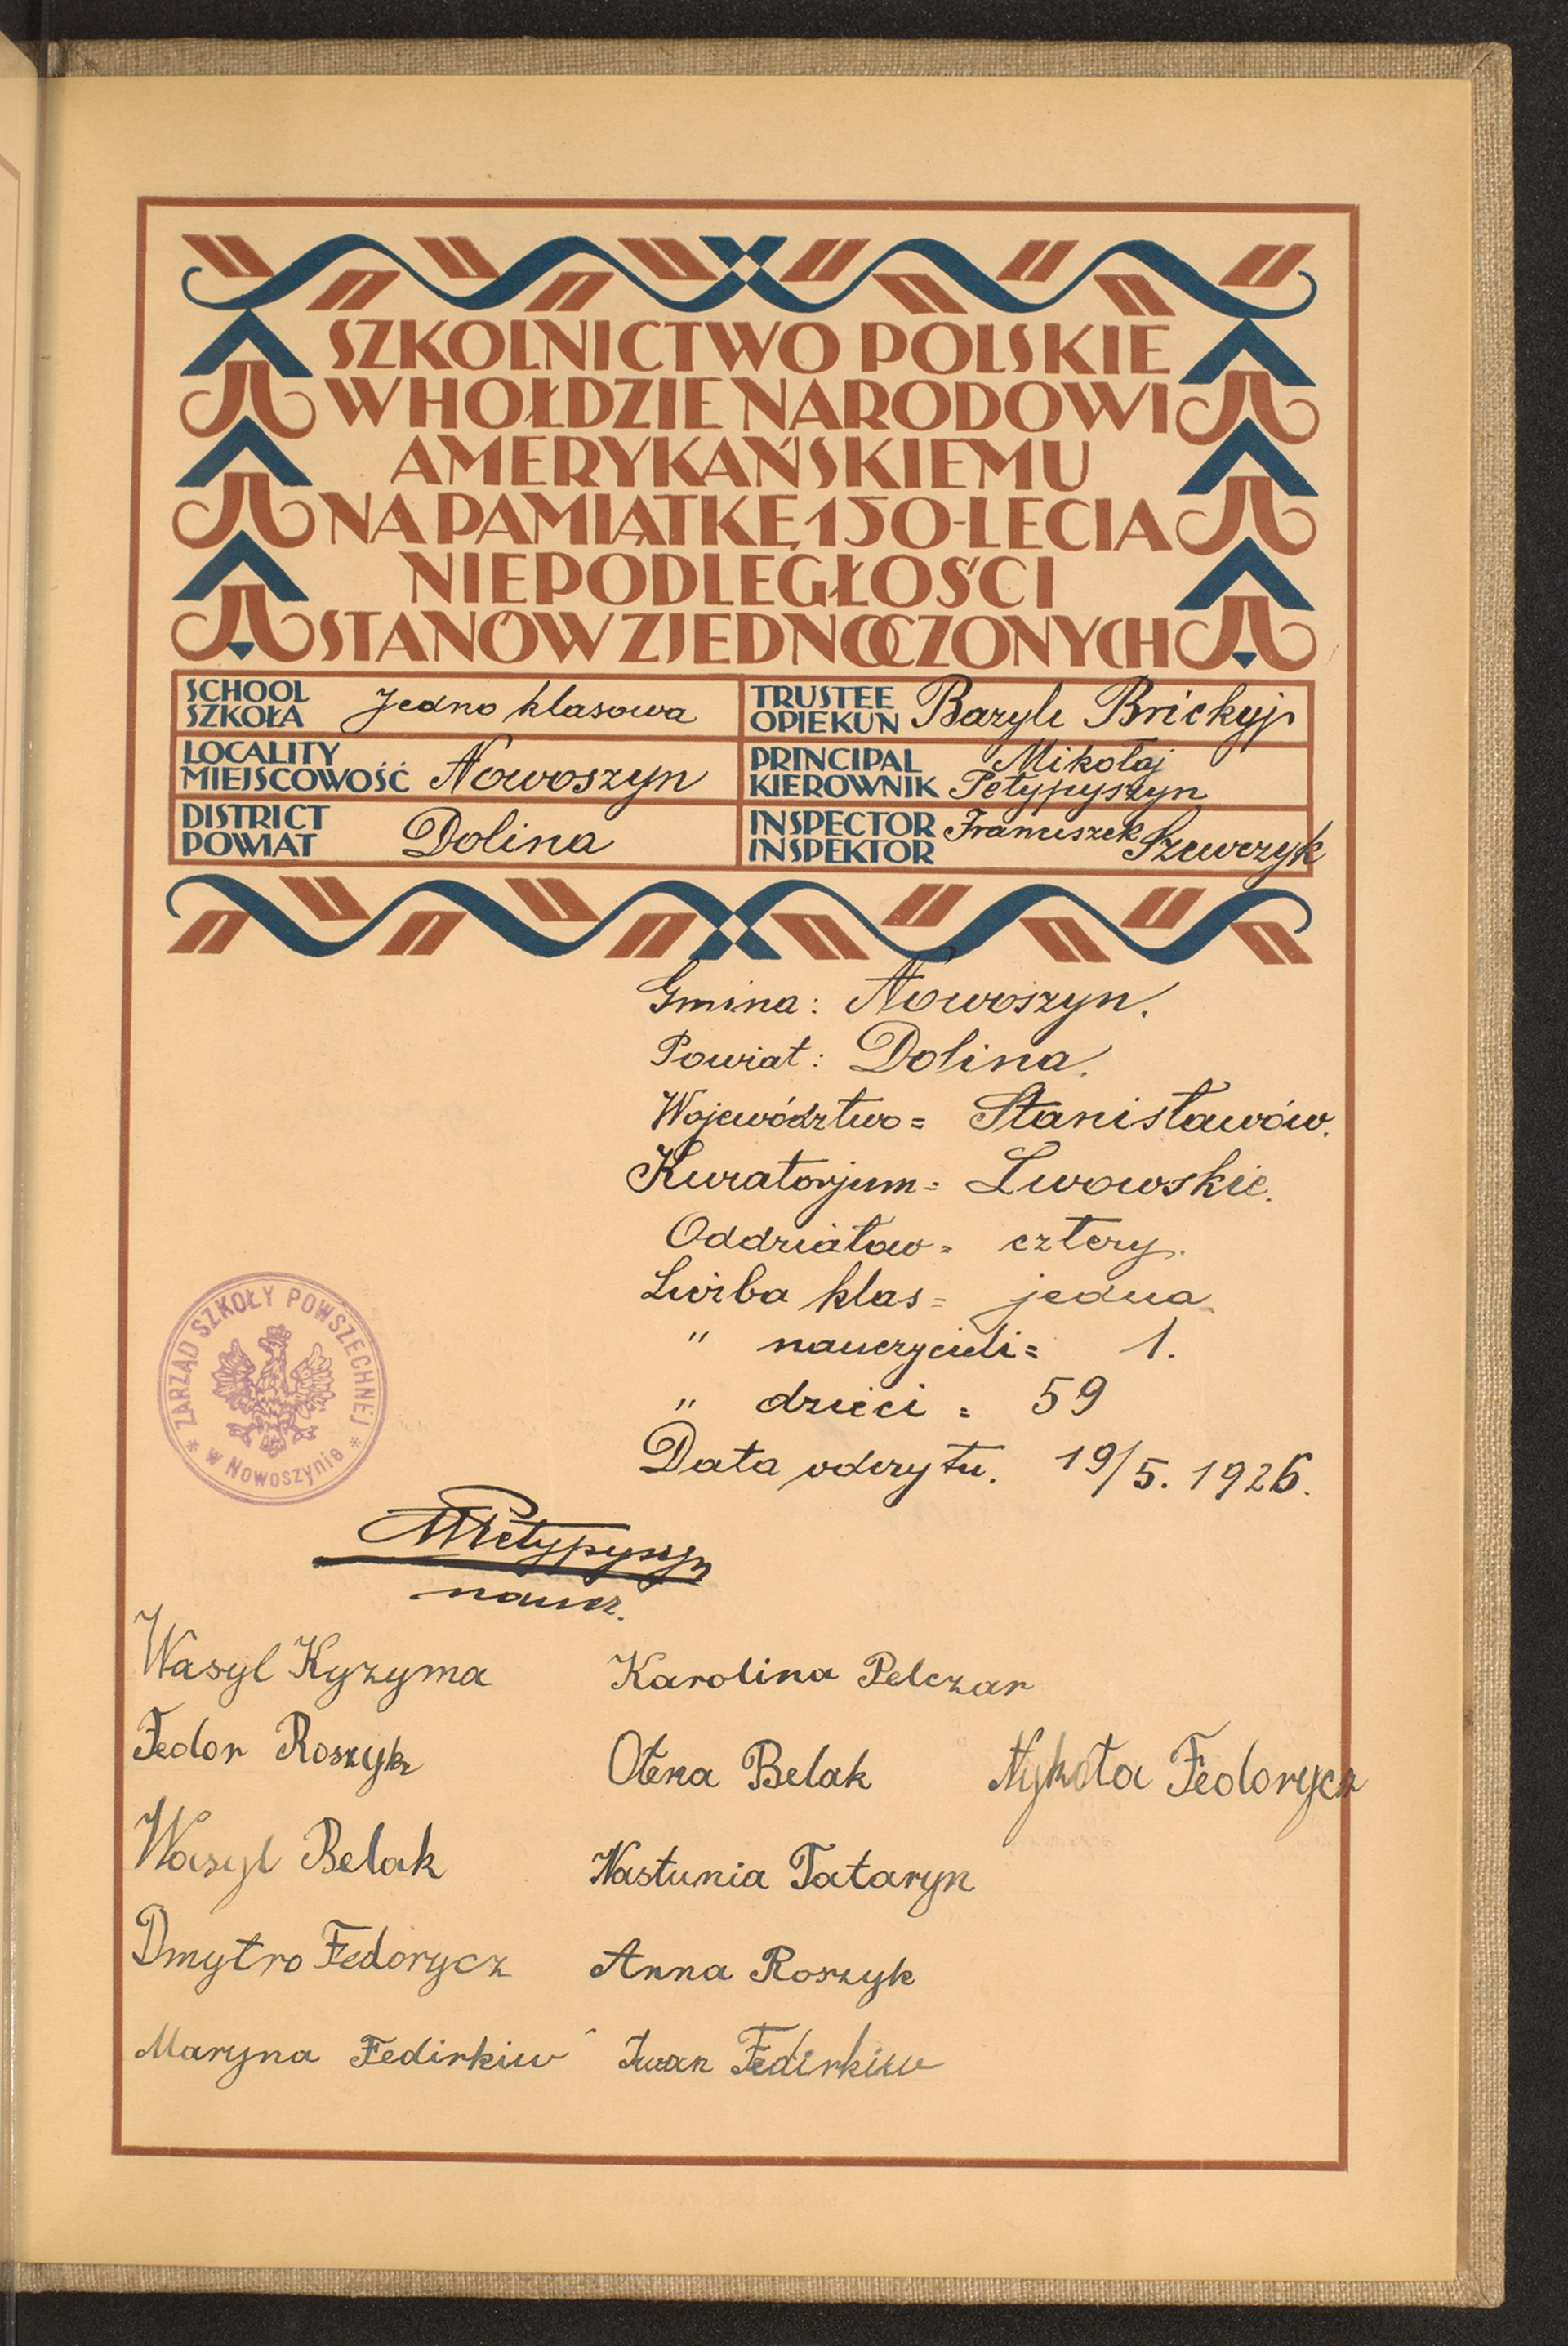 SZKOLNICTWO POLSKIE
W HOŁDZIE NARODOWI
AMERYKAŃSKIEMU
NA PAMIĄTKĘ 150-LECIA
NIEPODLEGŁOŚCI
STANÓW ZJEDNOCZONYCH
SCHOOL
SZKOŁA Jedno klasowa
TRUSTEE
OPIEKUN Bazyli Brickyj
LOCALITY
MIEJSCOWOŚĆ Nowoszyn
PRINCIPAL Mikołaj
KIEROWNIK Petypyszyn
DISTRICT
POWIAT Dolina
INSPECTOR Franciszek
INSPEKTOR Szewczyk
Gmina: Nowoszyn.
Powiat: Dolina.
Województwo = Stanisławów.
Kuratorjum = Lwowskie.
Oddziałow = cztery.
Liczba klas = jedna
" nauczycieli = 1.
" dzieci = 59
Data odczytu. 19/5. 1926.
ZARZĄD SZKOŁY POWSZECHNEJ
* w Nowoszynie *
MPetypyszyn
naucz.
Wasyl Kyzyma Karolina Pelczar
Fedor Roszyk Ołena Belak Nykoła Fedorycz
Wasyl Belak Nastunia Tataryn
Dmytro Fedorycz Anna Roszyk
Maryna Fedirkiw Iwan Fedirkiw